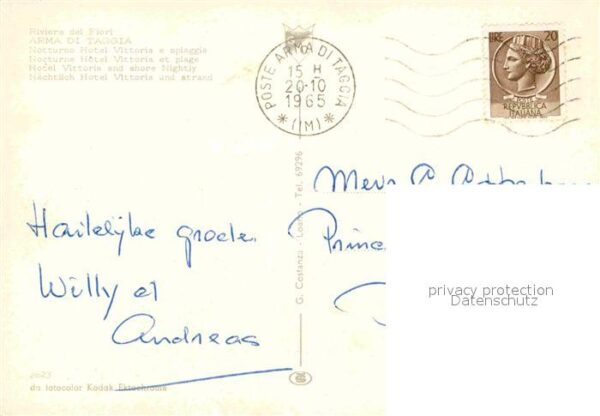 Riviera dei Fiori
ARMA DI TAGGIA
Notturno Hotel Vittoria e spiaggia
Nocturne Hôtel Vittoria et plage
Hotel Vittoria and shore Nightly
Nächtlich Hotel Vittoria und strand
POSTE ARMA DI TAGGIA
15 H
20·10
1965
* (IM) *
LIRE 20
POSTE
REPVBBLICA
ITALIANA
Mevr
Princ
Hartelijke groeten
Willy et
Andreas
G. Costanza - Loano - Tel. 69296
privacy protection
Datenschutz
da fotocolor Kodak Ektachrome